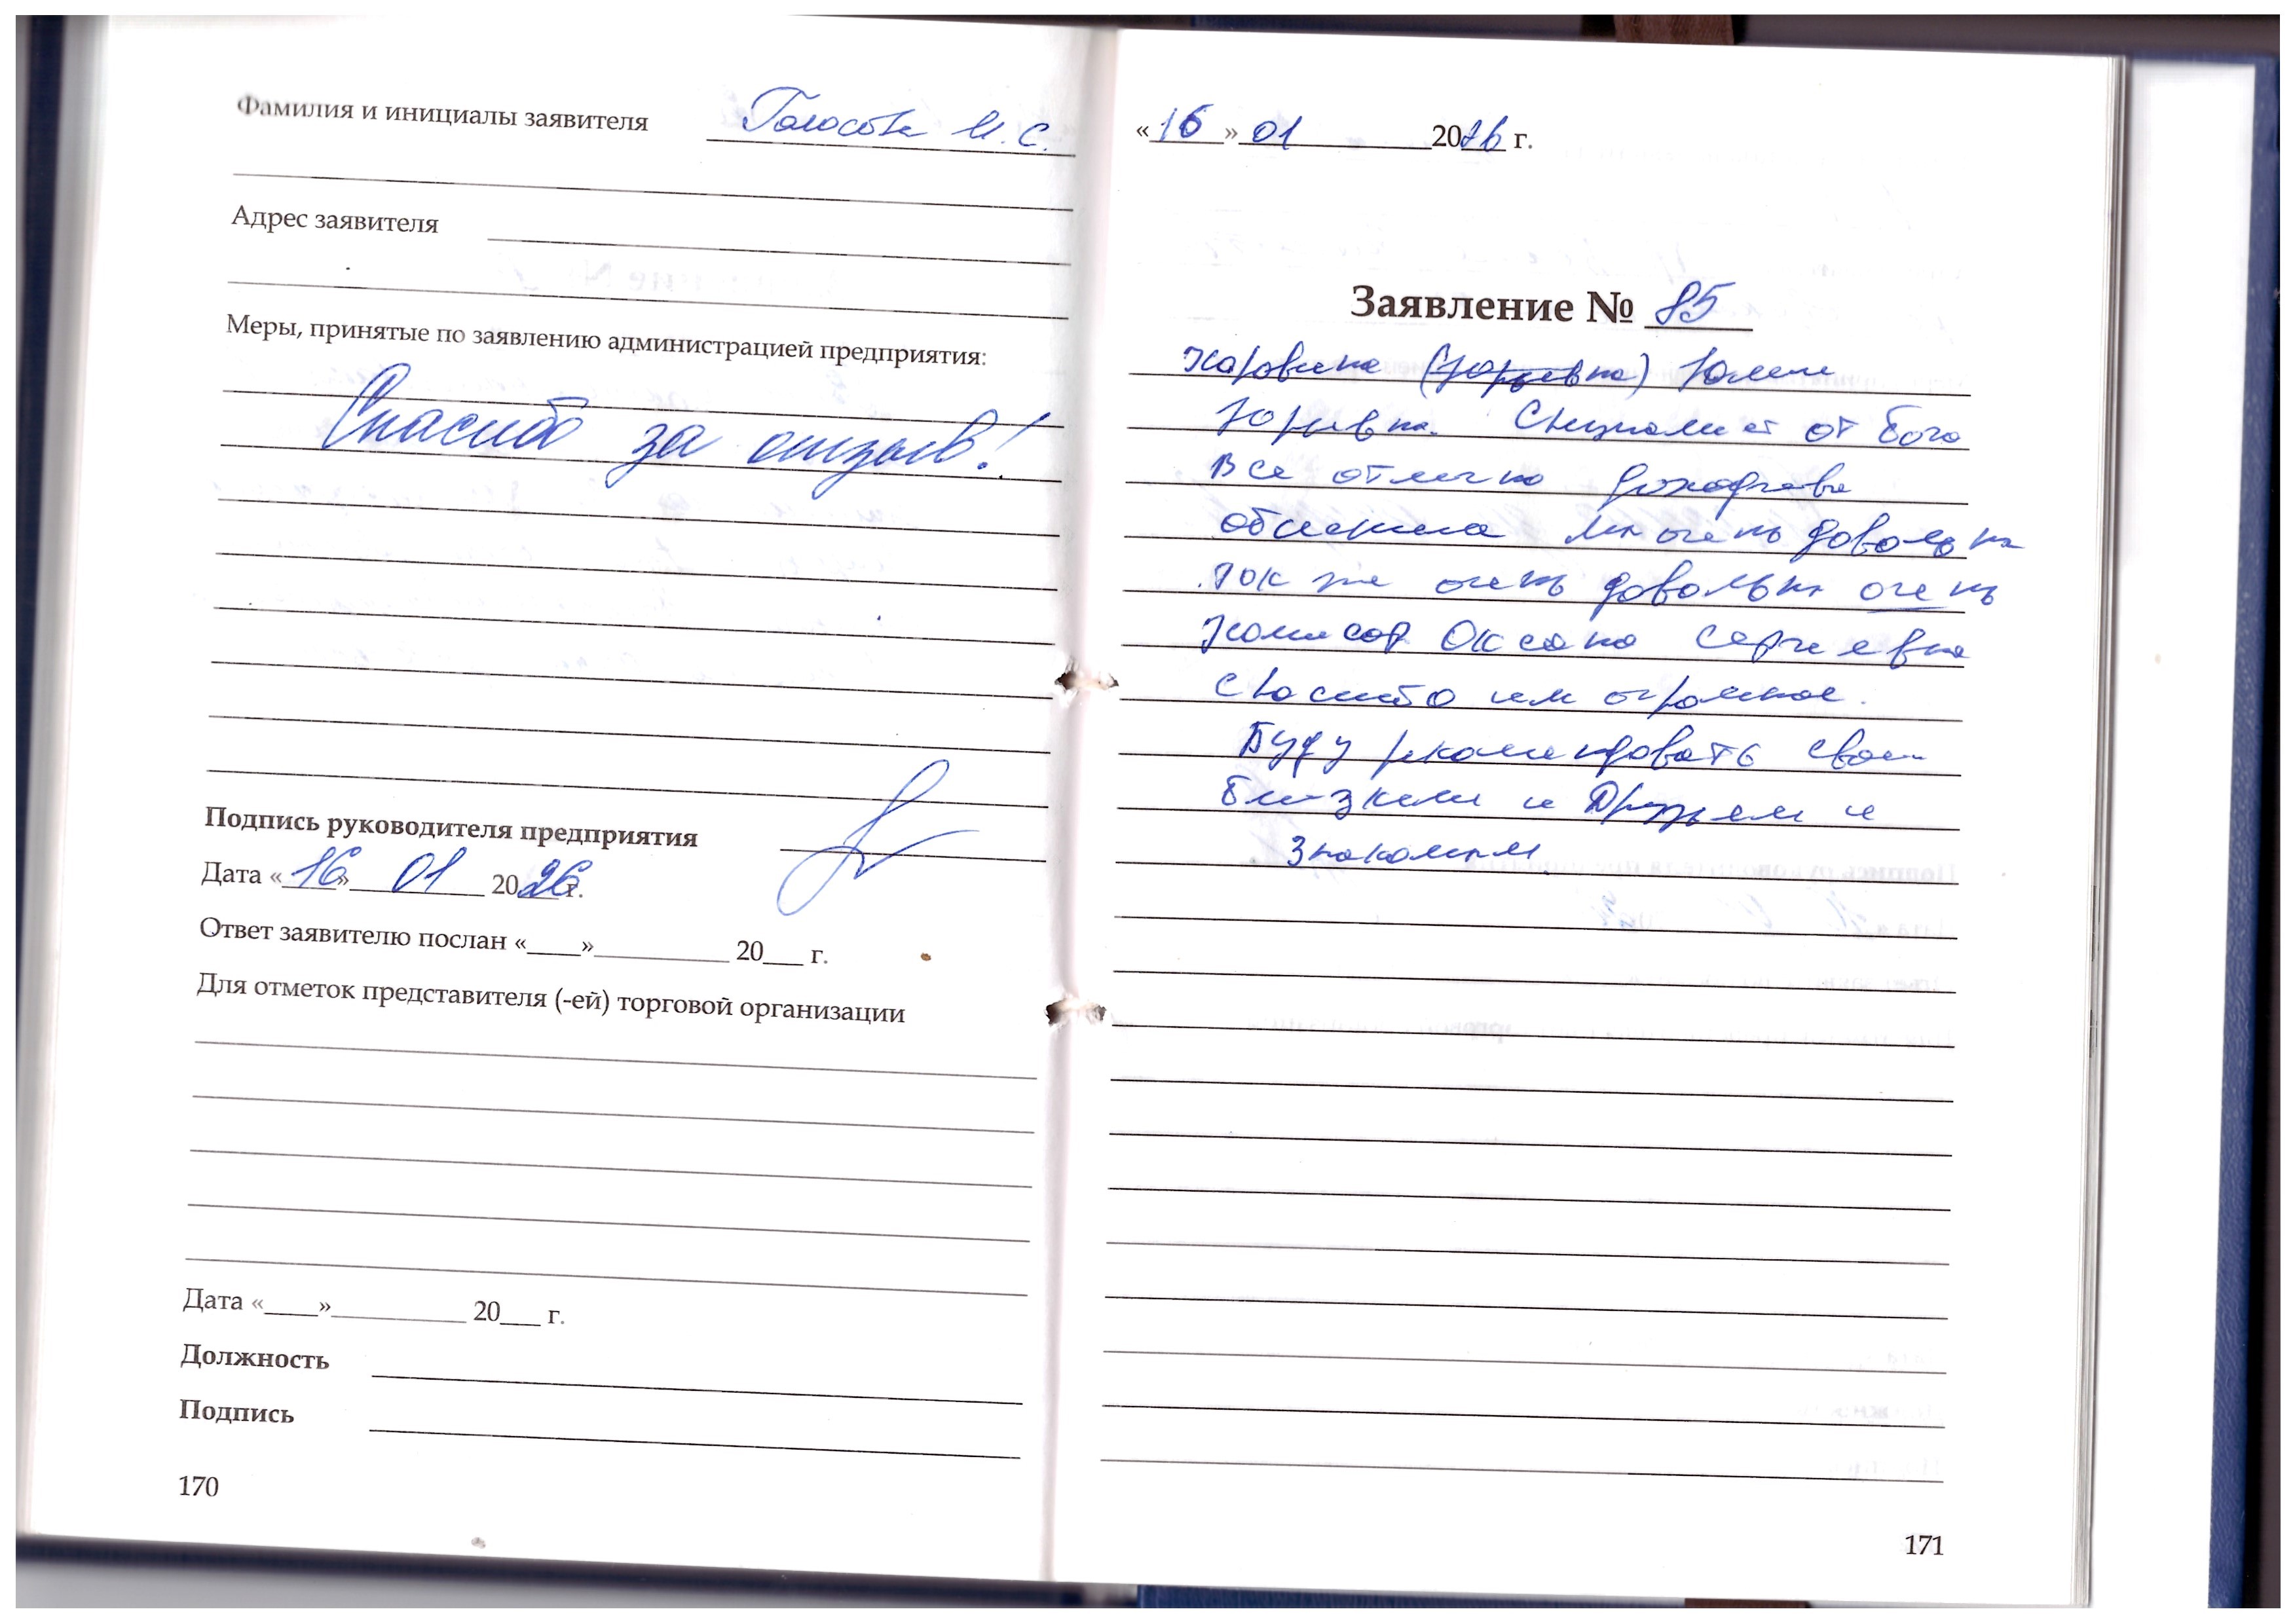 Фамилия и инициалы заявителя Голосова И. С.
Адрес заявителя
Меры, принятые по заявлению администрацией предприятия:
Спасибо за отзыв!
Подпись руководителя предприятия
Дата «16» 01 2026 г.
Ответ заявителю послан «____»__________ 20___ г.
Для отметок представителя (-ей) торговой организации
Дата «____»__________ 20___ г.
Должность
Подпись
170
«16» 01 2026 г.
Заявление № 85
(Юрьевна) Юлия
Юрьевна. Специалист от бога
Все отлично
обяснила довольна
так же очень довольна очень
Оксана Сергеевна
спасибо им огромное.
Буду своим
близким и Друзьям и
знакомым
171